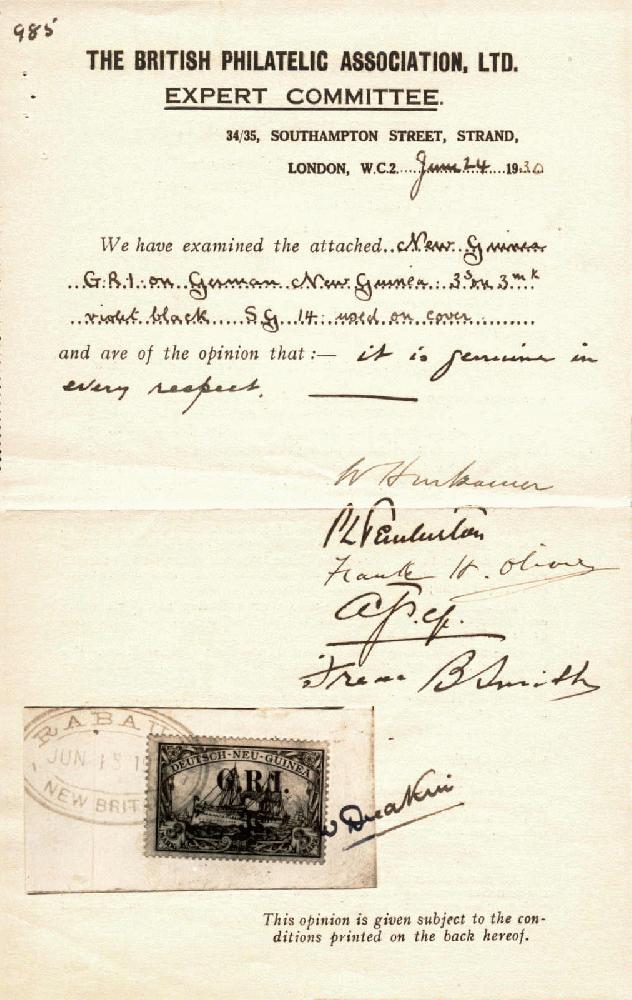 985
THE BRITISH PHILATELIC ASSOCIATION, LTD.
EXPERT COMMITTEE.
34/35, SOUTHAMPTON STREET, STRAND,
LONDON, W.C.2. June 24 1930
We have examined the attached New Guinea
G.R.I. on German New Guinea: 3s on 3mk
violet black SG 14 used on cover
and are of the opinion that :— it is genuine in
every respect.
Frank H. Oliver
B Smith
RABAU
JUN 13 19
NEW BRIT
DEUTSCH-NEU-GUINEA
G.R.I.
This opinion is given subject to the con-
ditions printed on the back hereof.